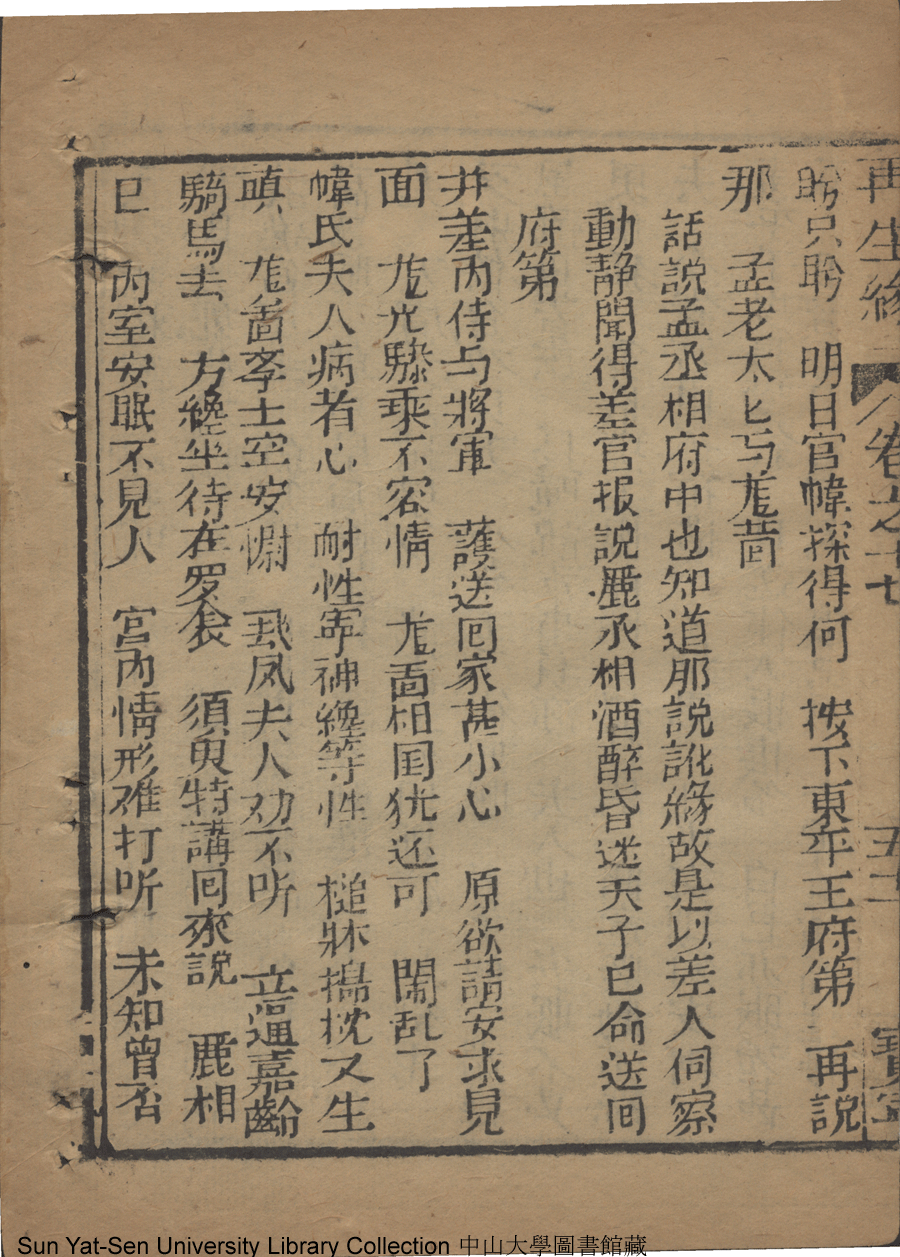 再生緣 卷之十七 五十二
盼只盼 明日宮幃探得何 按下東平王府第 再說
那 孟老太匕与尨啚
話説孟丞相府中也知道那説訛緣故是以差人伺察
動靜聞得差官报説鹿丞相酒醉昏迷天子已命送回
府第
并差内侍与將軍 護送回家甚小心 原欲請安求見
面 尨光驂乘不容情 尨啚相国犹还可 閙乱了
幃氏夫人病者心 耐性寧神纔等性 槌牀搗枕又生
嗔 尨啚孝士空安慰 夫人劝不听 立逼嘉齡
騎馬去 方纔坐待在罗衾 須臾特講回來説 鹿相
已 内室安眠不見人 宮内情形难打听 未知曾否
Sun Yat-Sen University Library Collection 中山大學圖書館藏